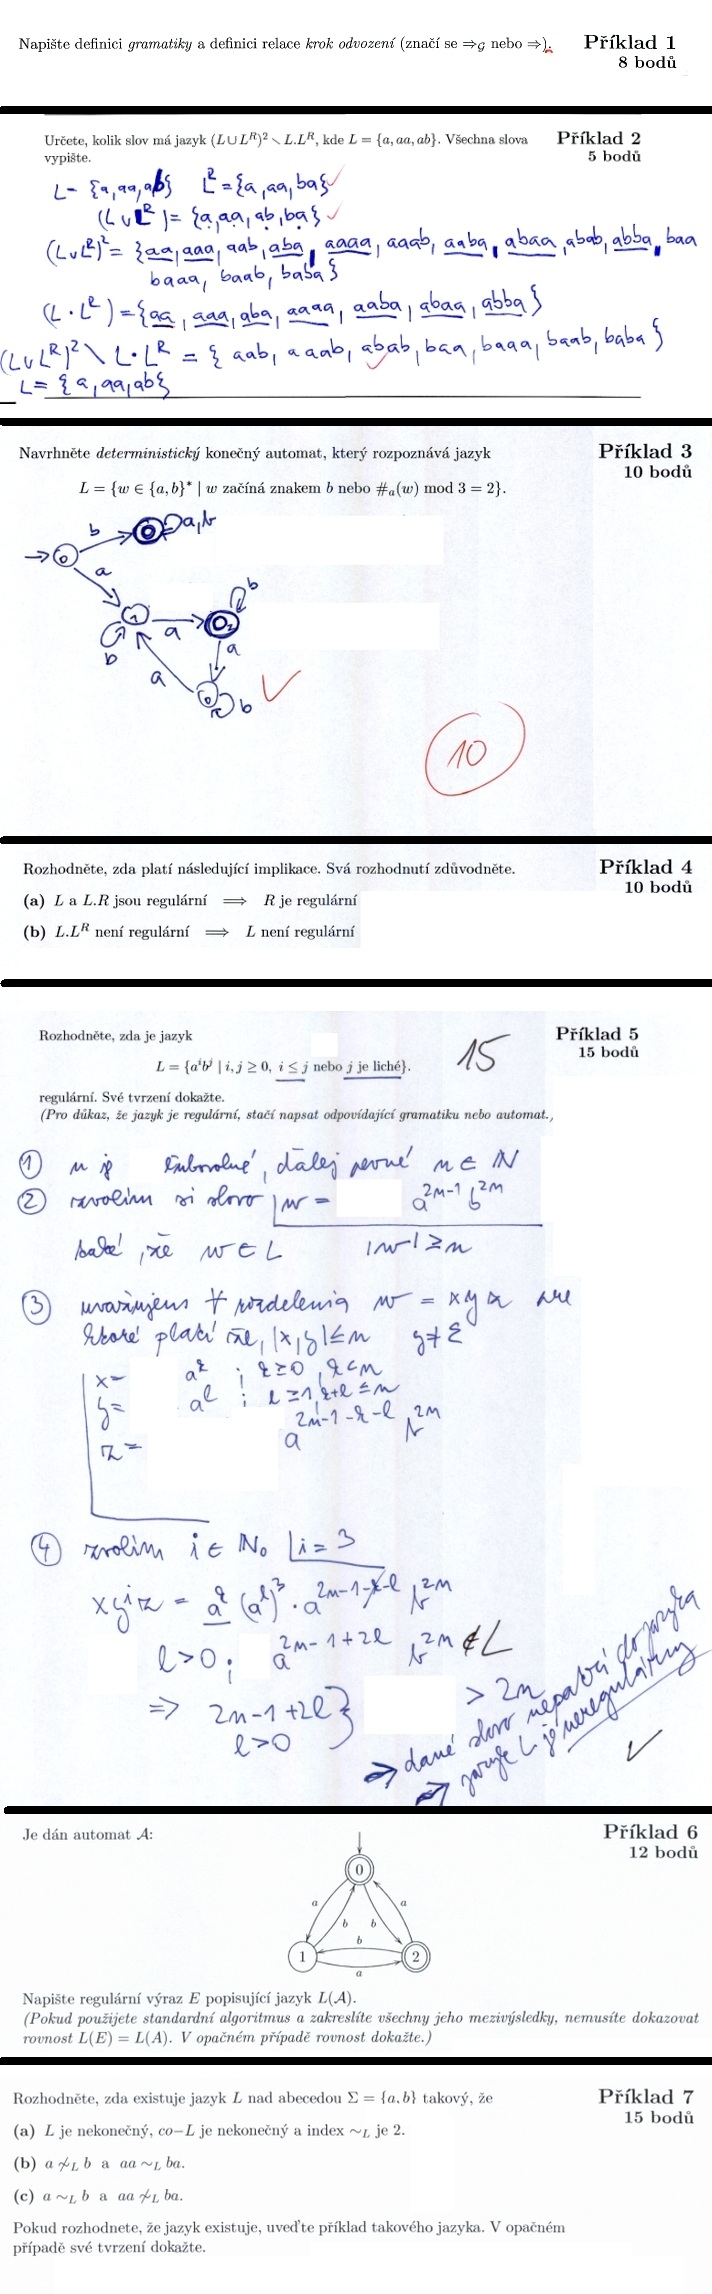 Napište definici gramatiky a definici relace krok odvození (značí se ⇒𝒢 nebo ⇒).
Příklad 1
8 bodů
Určete, kolik slov má jazyk (L∪L^R)^2 ∖ L.L^R, kde L = {a, aa, ab}. Všechna slova
vypište.
Příklad 2
5 bodů
L = {a, aa, ab} L^R = {a, aa, ba}
(L ∪ L^R) = {a, aa, ab, ba}
(L∪L^R)^2 = {aa, aaa, aab, aba, aaaa, aaab, aaba, abaa, abab, abba, baa
baaa, baab, baba}
(L · L^R) = {aa, aaa, aba, aaaa, aaba, abaa, abba}
(L∪L^R)^2 \ L·L^R = { aab, aaab, abab, baa, baaa, baab, baba }
L = {a, aa, ab}
Navrhněte deterministický konečný automat, který rozpoznává jazyk
Příklad 3
10 bodů
L = {w ∈ {a, b}* | w začíná znakem b nebo #a(w) mod 3 = 2}.
b a,b
a
b
1 a 2
b a
a
0 b
10
Rozhodněte, zda platí následující implikace. Svá rozhodnutí zdůvodněte.
Příklad 4
10 bodů
(a) L a L.R jsou regulární ⟹ R je regulární
(b) L.L^R není regulární ⟹ L není regulární
Rozhodněte, zda je jazyk
Příklad 5
15 bodů
L = {a^i b^j | i, j ≥ 0, i ≤ j nebo j je liché}.
15
regulární. Své tvrzení dokažte.
(Pro důkaz, že jazyk je regulární, stačí napsat odpovídající gramatiku nebo automat.,
① n je ľubovolné, ďalej pevné n ∈ N
② zvolim si slovo w = a^{2n-1} b^{2n}
také, že w ∈ L |w| ≥ n
③ uvažujem ∀ rozdelenia w = xyz pre
ktoré platí že, |x,y| ≤ n y ≠ ε
x = a^k ; k ≥ 0, k < n
y = a^l ; l ≥ 1, k+l ≤ n
z = a^{2n-1-k-l} b^{2n}
④ zvolím i ∈ N₀ i = 3
xy^iz = a^k (a^l)^3 . a^{2n-1-k-l} b^{2n}
l > 0 ; a^{2n-1+2l} b^{2n} ∉ L
⇒ 2n-1+2l } > 2n
l > 0
⇒ dané slovo nepatrí do jazyka
⇒ jazyk L je neregulárny
Je dán automat 𝒜:
Příklad 6
12 bodů
0
a a
b b
b
1 2
a
Napište regulární výraz E popisující jazyk L(𝒜).
(Pokud použijete standardní algoritmus a zakreslíte všechny jeho mezivýsledky, nemusíte dokazovat
rovnost L(E) = L(𝒜). V opačném případě rovnost dokažte.)
Rozhodněte, zda existuje jazyk L nad abecedou Σ = {a, b} takový, že
Příklad 7
15 bodů
(a) L je nekonečný, co−L je nekonečný a index ∼L je 2.
(b) a ≁L b a aa ∼L ba.
(c) a ∼L b a aa ≁L ba.
Pokud rozhodnete, že jazyk existuje, uveďte příklad takového jazyka. V opačném
případě své tvrzení dokažte.